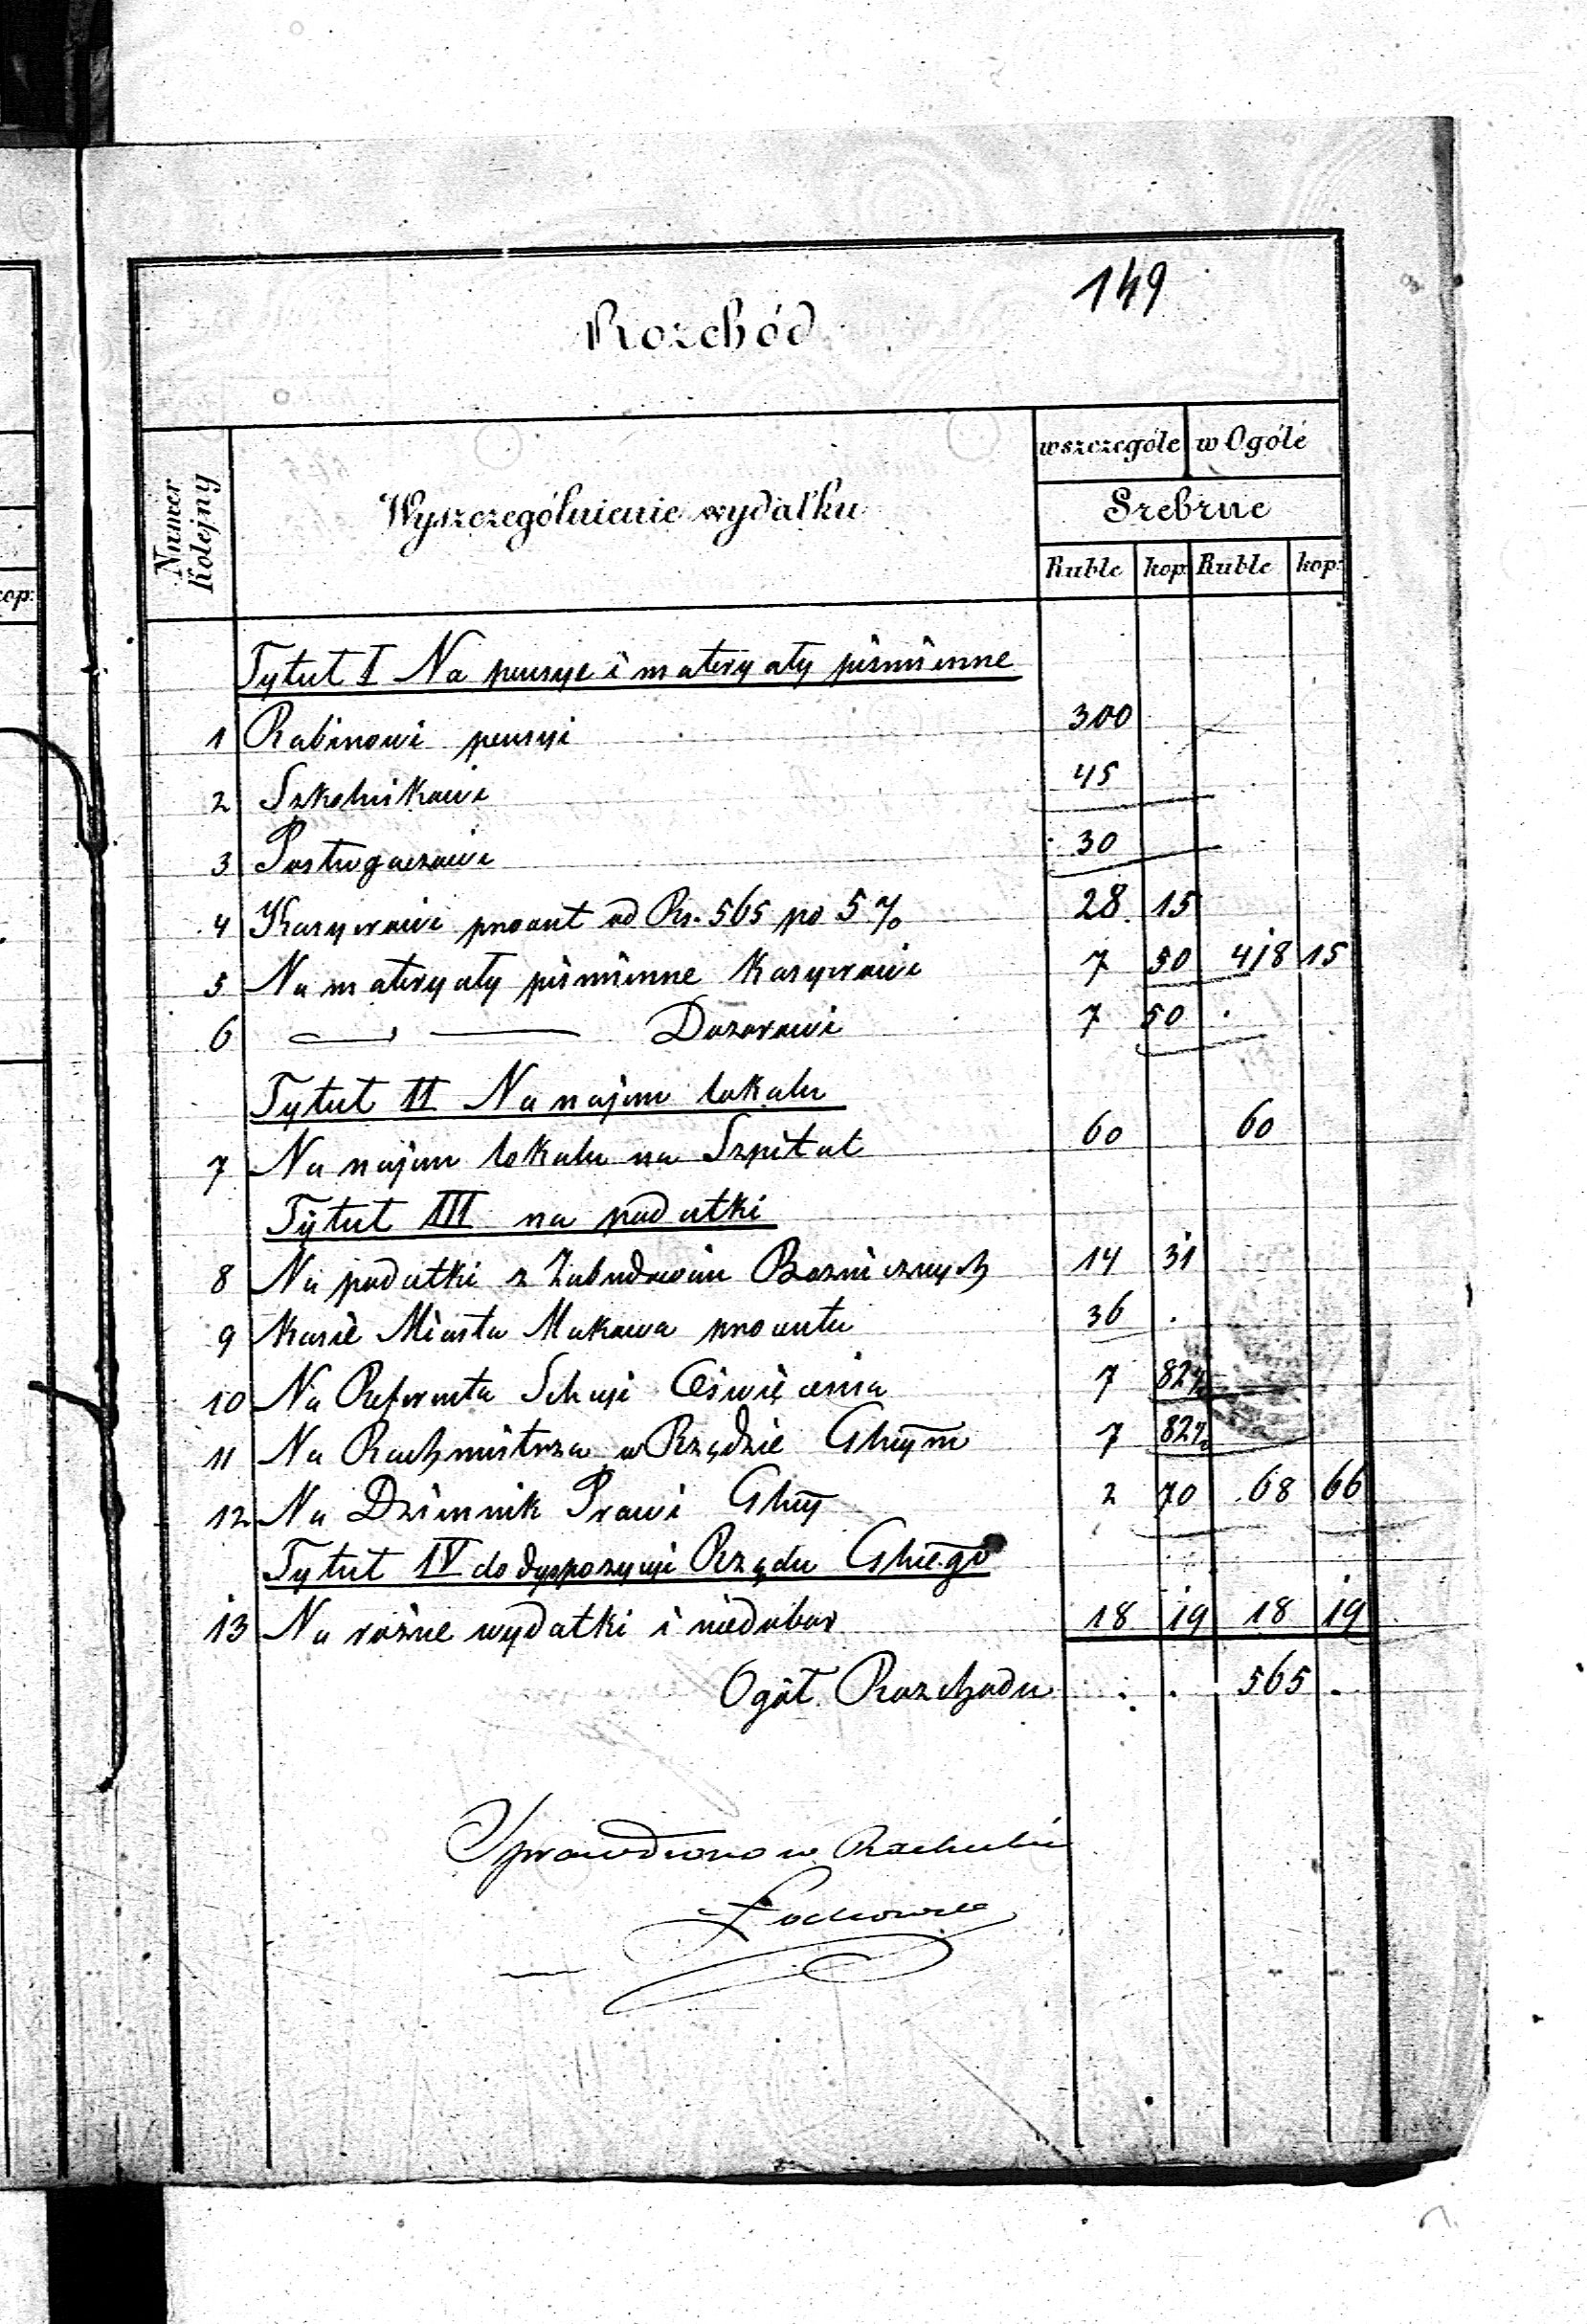 149
Rozchód
Numer Kolejny
Wyszczególnienie wydatku
wszczególe w Ogóle
Srebrne
Ruble kop: Ruble kop:
kop:
Tytuł I Na pensye i materyały piśmienne
1 Rabinowi pensyi 300
2 Szkolnikowi 45
3 Postugaczowi 30
4 Kasyerowi procent od Rs. 565 po 5 % 28 15
5 Na materyały piśmienne Kasyerowi 7 50 418 15
6 Dozorowi 7 50
Tytuł II Na najem lokalu
7 Na najem lokalu na Szpital 60 60
Tytuł III na podatki
8 Na podatki z Zabudowań Bożnicznych 14 31
9 Kasie Miasta Makowa procentu 36 .
10 Na Referenta Sekcyi Oświecenia 7 82½
11 Na Rachmistrza w Rządzie Gbnym 7 82½
12 Na Dziennik Praw i Gbny 2 70 68 66
Tytuł IV do dyspozycyi Rządu Gbnego
13 Na różne wydatki i niedobor 18 19 18 19
Ogół Rozchodu . . 565 .
Sprawdzono w Rachubie